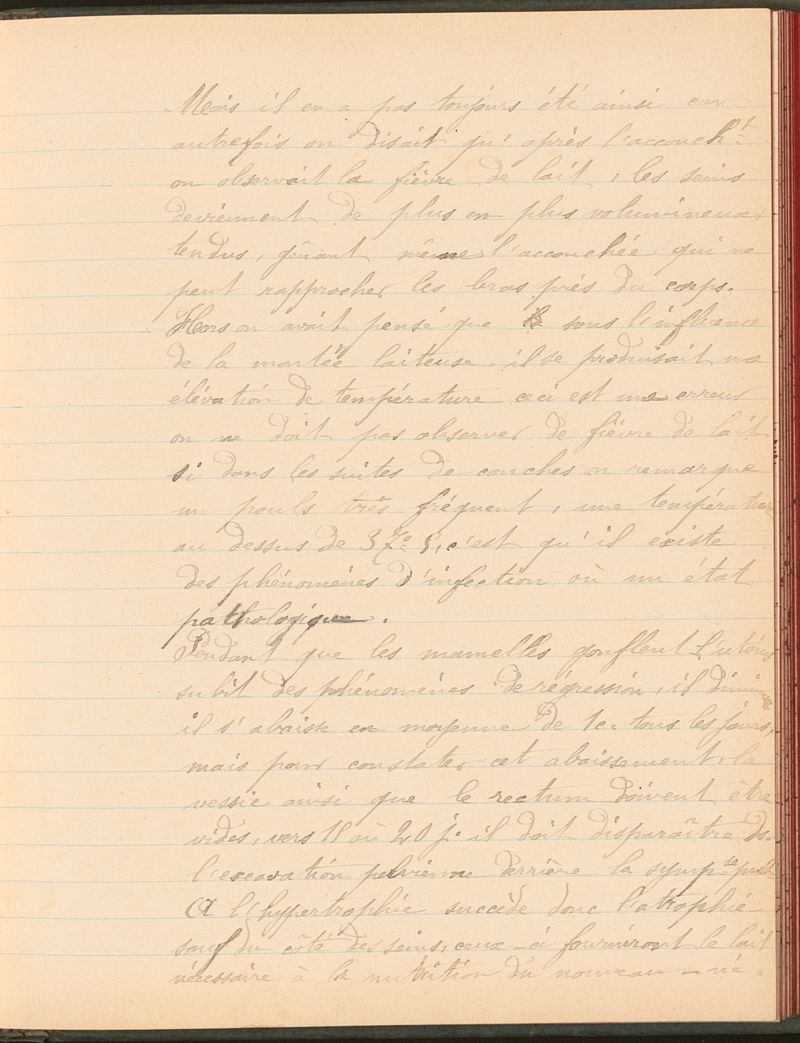 Mais il en a pas toujours été ainsi car
autrefois on disait qu'après l'accouch^t
on observait la fièvre de lait, les seins
deviennent de plus en plus volumineux,
tendus, gênant même l'accouchée qui ne
peut rapprocher les bras près du corps.
Alors on avait pensé que sous l'influence
de la montée laiteuse, il se produisait une
élévation de température ceci est une erreur
on ne doit pas observer de fièvre de lait
si dans les suites de couches on remarque
un pouls très fréquent, une température
au dessus de 37° 5, c'est qu'il existe
des phénomènes d'infection où un état
pathologique.
Pendant que les mamelles gonflent l'utérus
subit des phénomènes de régression, il diminue
il s'abaisse en moyenne de 1c. tous les jours,
mais pour constater cet abaissement, la
vessie ainsi que le rectum doivent être
vides, vers 18 où 20 j. il doit disparaître ds.
l'excavation pelvienne derrière la symp^se pub.
A l'hypertrophie succède donc l'atrophie
sauf du côté des seins, ceux-ci fourniront le lait
nécessaire à la nutrition du nouveau-né.